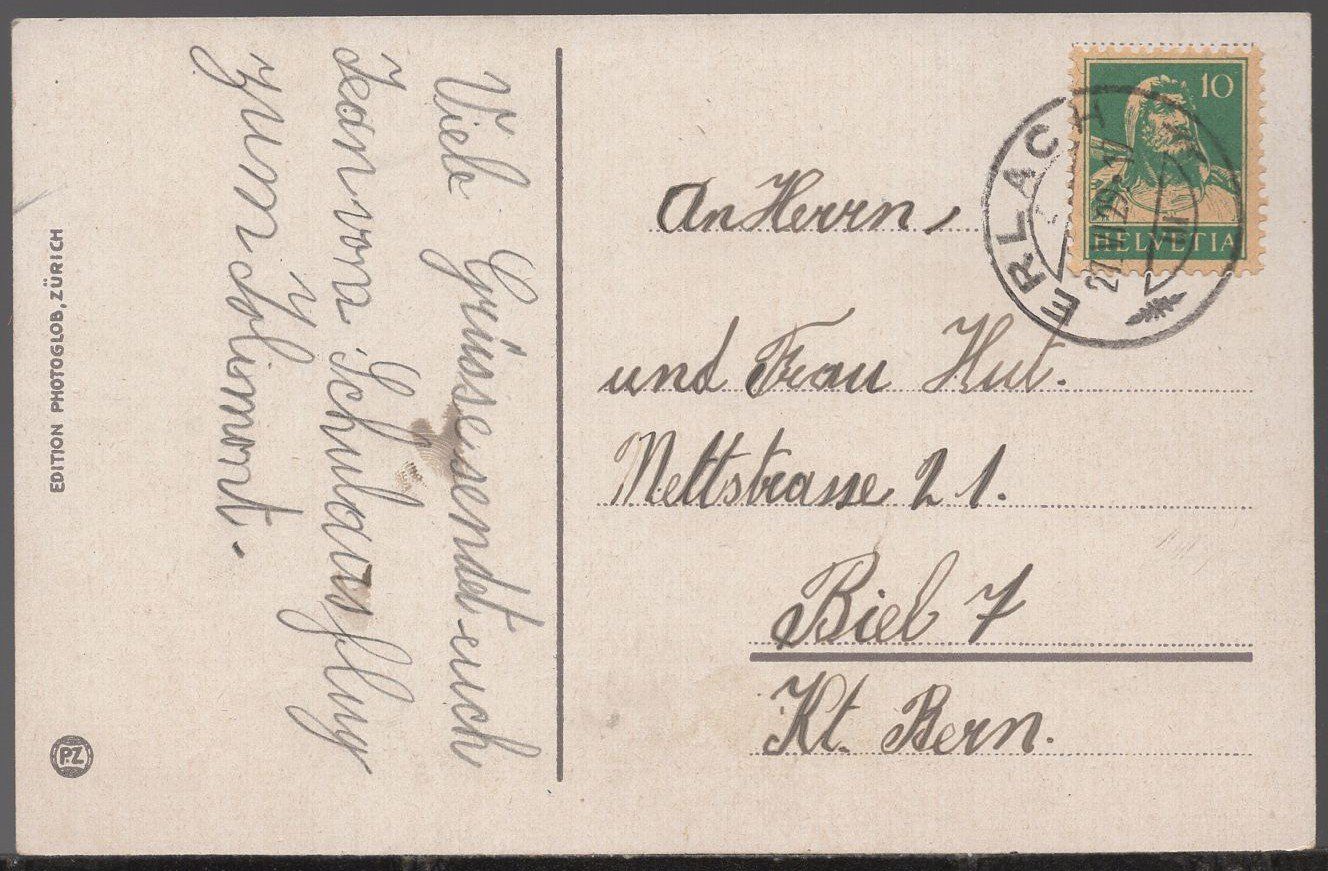 Viele Grüsse sendet euch
Jean vom Schulausflug
zum Jolimont.
An Herrn,
und Frau Hut.
Mettstrasse 21.
Biel 7
Kt. Bern.
10
HELVETIA
ERLACH
EDITION PHOTOGLOB, ZÜRICH
P.Z